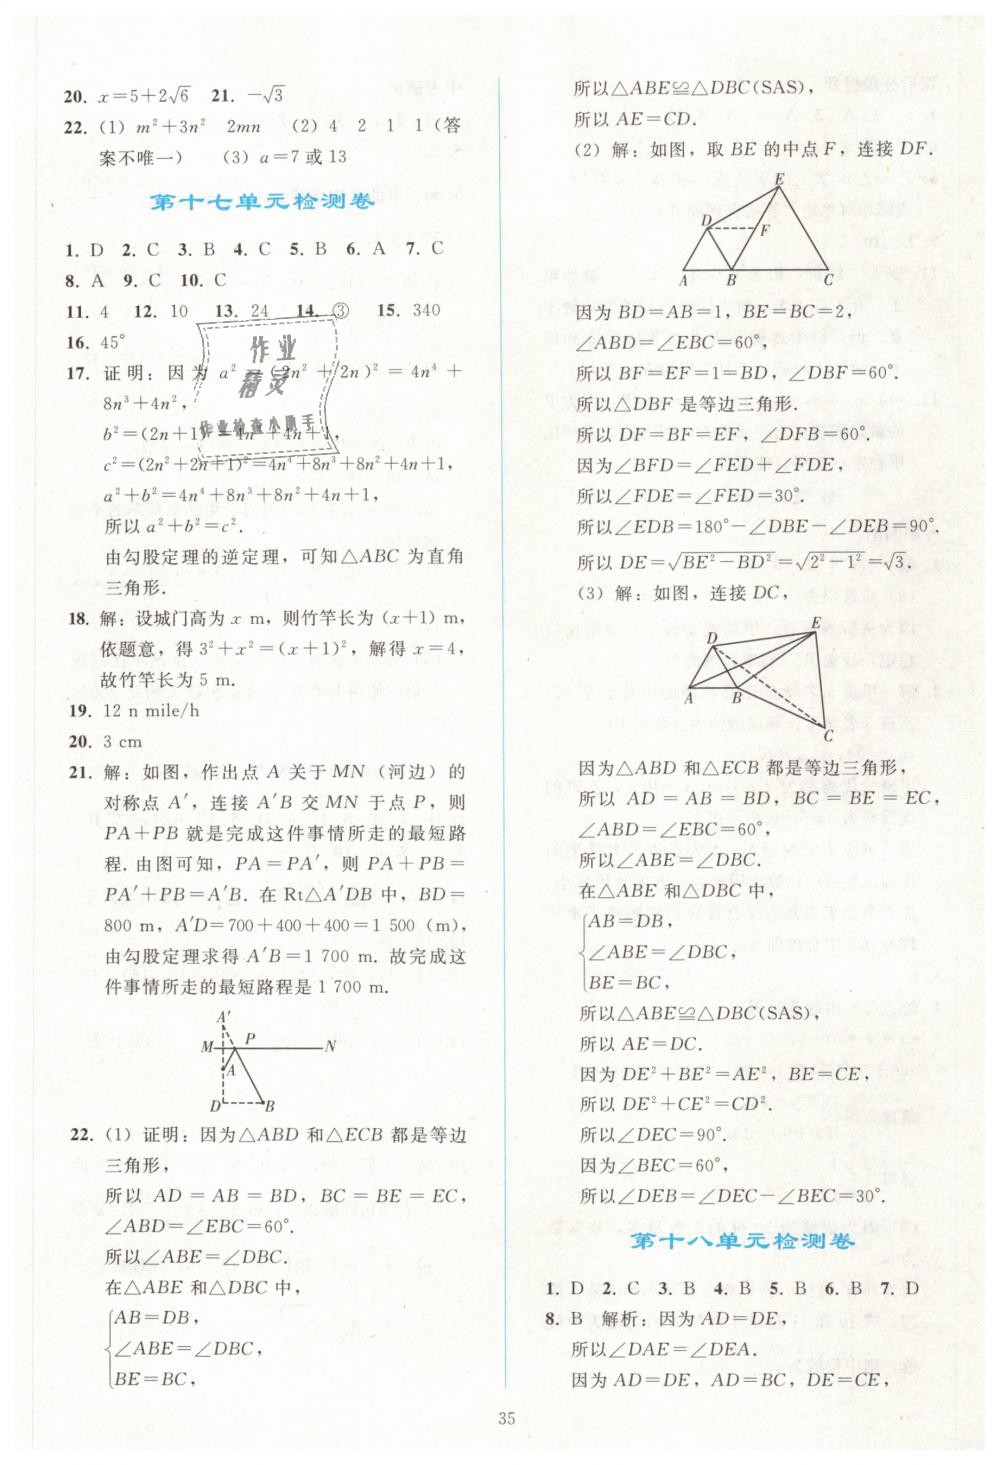 20. x=5+2√6  21. -√3
22. (1) m²+3n²  2mn  (2) 4  2  1  1(答
案不唯一)  (3) a=7或13
第十七单元检测卷
1. D  2. C  3. B  4. C  5. B  6. A  7. C
8. A  9. C  10. C
11. 4  12. 10  13. 24  14. ③  15. 340
16. 45°
17. 证明：因为 a²=(2n²+2n)²=4n⁴+
8n³+4n²，
b²=(2n+1)²=4n²+4n+1，
c²=(2n²+2n+1)²=4n⁴+8n³+8n²+4n+1，
a²+b²=4n⁴+8n³+8n²+4n+1，
所以 a²+b²=c².
由勾股定理的逆定理，可知△ABC 为直角
三角形.
18. 解：设城门高为 x m，则竹竿长为(x+1) m，
依题意，得 3²+x²=(x+1)²，解得 x=4，
故竹竿长为 5 m.
19. 12 n mile/h
20. 3 cm
21. 解：如图，作出点 A 关于 MN（河边）的
对称点 A′，连接 A′B 交 MN 于点 P，则
PA+PB 就是完成这件事情所走的最短路
程. 由图可知，PA=PA′，则 PA+PB=
PA′+PB=A′B. 在 Rt△A′DB 中，BD=
800 m，A′D=700+400+400=1 500 (m)，
由勾股定理求得 A′B=1 700 m. 故完成这
件事情所走的最短路程是 1 700 m.
A′
M P N
A
D B
22. (1) 证明：因为△ABD 和△ECB 都是等边
三角形，
所以 AD=AB=BD，BC=BE=EC，
∠ABD=∠EBC=60°.
所以∠ABE=∠DBC.
在△ABE 和△DBC 中，
AB=DB，
∠ABE=∠DBC，
BE=BC，
所以△ABE≌△DBC(SAS)，
所以 AE=CD.
(2) 解：如图，取 BE 的中点 F，连接 DF.
E
D F
A B C
因为 BD=AB=1，BE=BC=2，
∠ABD=∠EBC=60°，
所以 BF=EF=1=BD，∠DBF=60°.
所以△DBF 是等边三角形.
所以 DF=BF=EF，∠DFB=60°.
因为∠BFD=∠FED+∠FDE，
所以∠FDE=∠FED=30°.
所以∠EDB=180°-∠DBE-∠DEB=90°.
所以 DE=√(BE²-BD²)=√(2²-1²)=√3.
(3) 解：如图，连接 DC，
E
D
A B
C
因为△ABD 和△ECB 都是等边三角形，
所以 AD=AB=BD，BC=BE=EC，
∠ABD=∠EBC=60°，
所以∠ABE=∠DBC.
在△ABE 和△DBC 中，
AB=DB，
∠ABE=∠DBC，
BE=BC，
所以△ABE≌△DBC(SAS)，
所以 AE=DC.
因为 DE²+BE²=AE²，BE=CE，
所以 DE²+CE²=CD².
所以∠DEC=90°.
因为∠BEC=60°，
所以∠DEB=∠DEC-∠BEC=30°.
第十八单元检测卷
1. D  2. C  3. B  4. B  5. B  6. B  7. D
8. B  解析：因为 AD=DE，
所以∠DAE=∠DEA.
因为 AD=DE，AD=BC，DE=CE，
35
作业
精灵
作业检查小助手